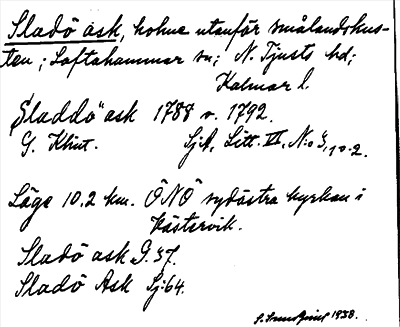 Sladö ask, holme utanför smålandskus-
ten; Loftahammar sn; N. Tjusts hd;
Kalmar l.
"Sladdö" ask 1788 o. 1792.
G. Klint. SjA, Litt. III, N:o 3, 10.2.
Läge 10,2 km. ÖNÖ sydöstra kyrkan i
Västervik.
Sladö ask G.37.
Sladö Ask Sj:64.
1938.